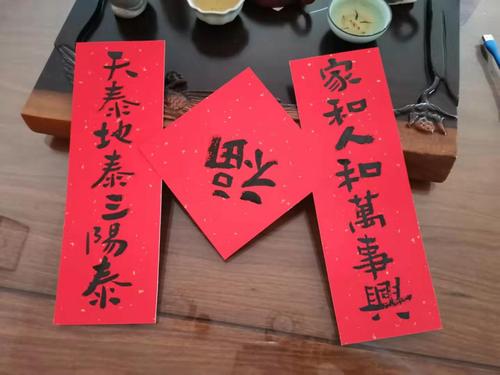 天泰地泰三陽泰
福
家和人和萬事興